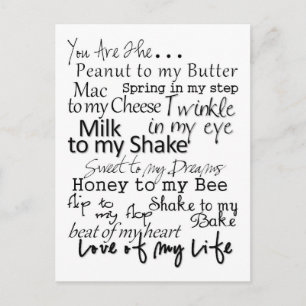 You Are The...
Peanut to my Butter
Mac Spring in my step
to my Cheese Twinkle
Milk in my eye
to my Shake
Sweet to my Dreams
Honey to my Bee
flip to my flop Shake to my Bake
beat of my heart
Love of my Life